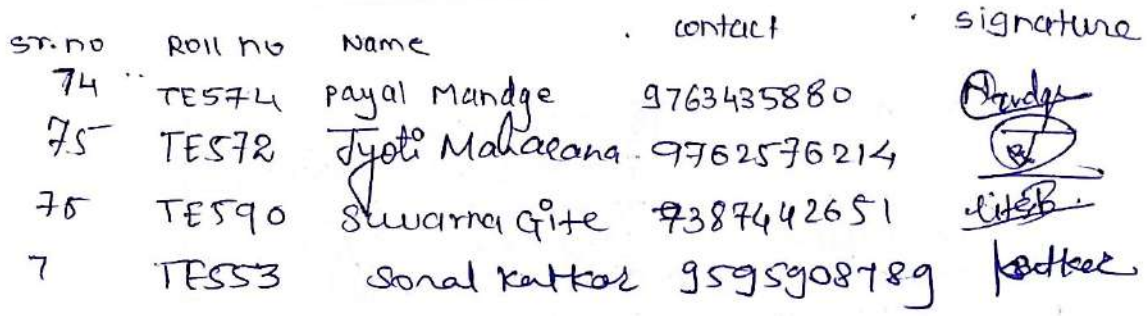 Sr.no Roll no Name contact signature
74 TE574 Payal Mandge 9763435880
75 TE572 Jyoti Maharana 9762576214
76 TE590 Suwarna Gite 7387442651
7 TE553 Sonal Katkar 9595908789 Katkar